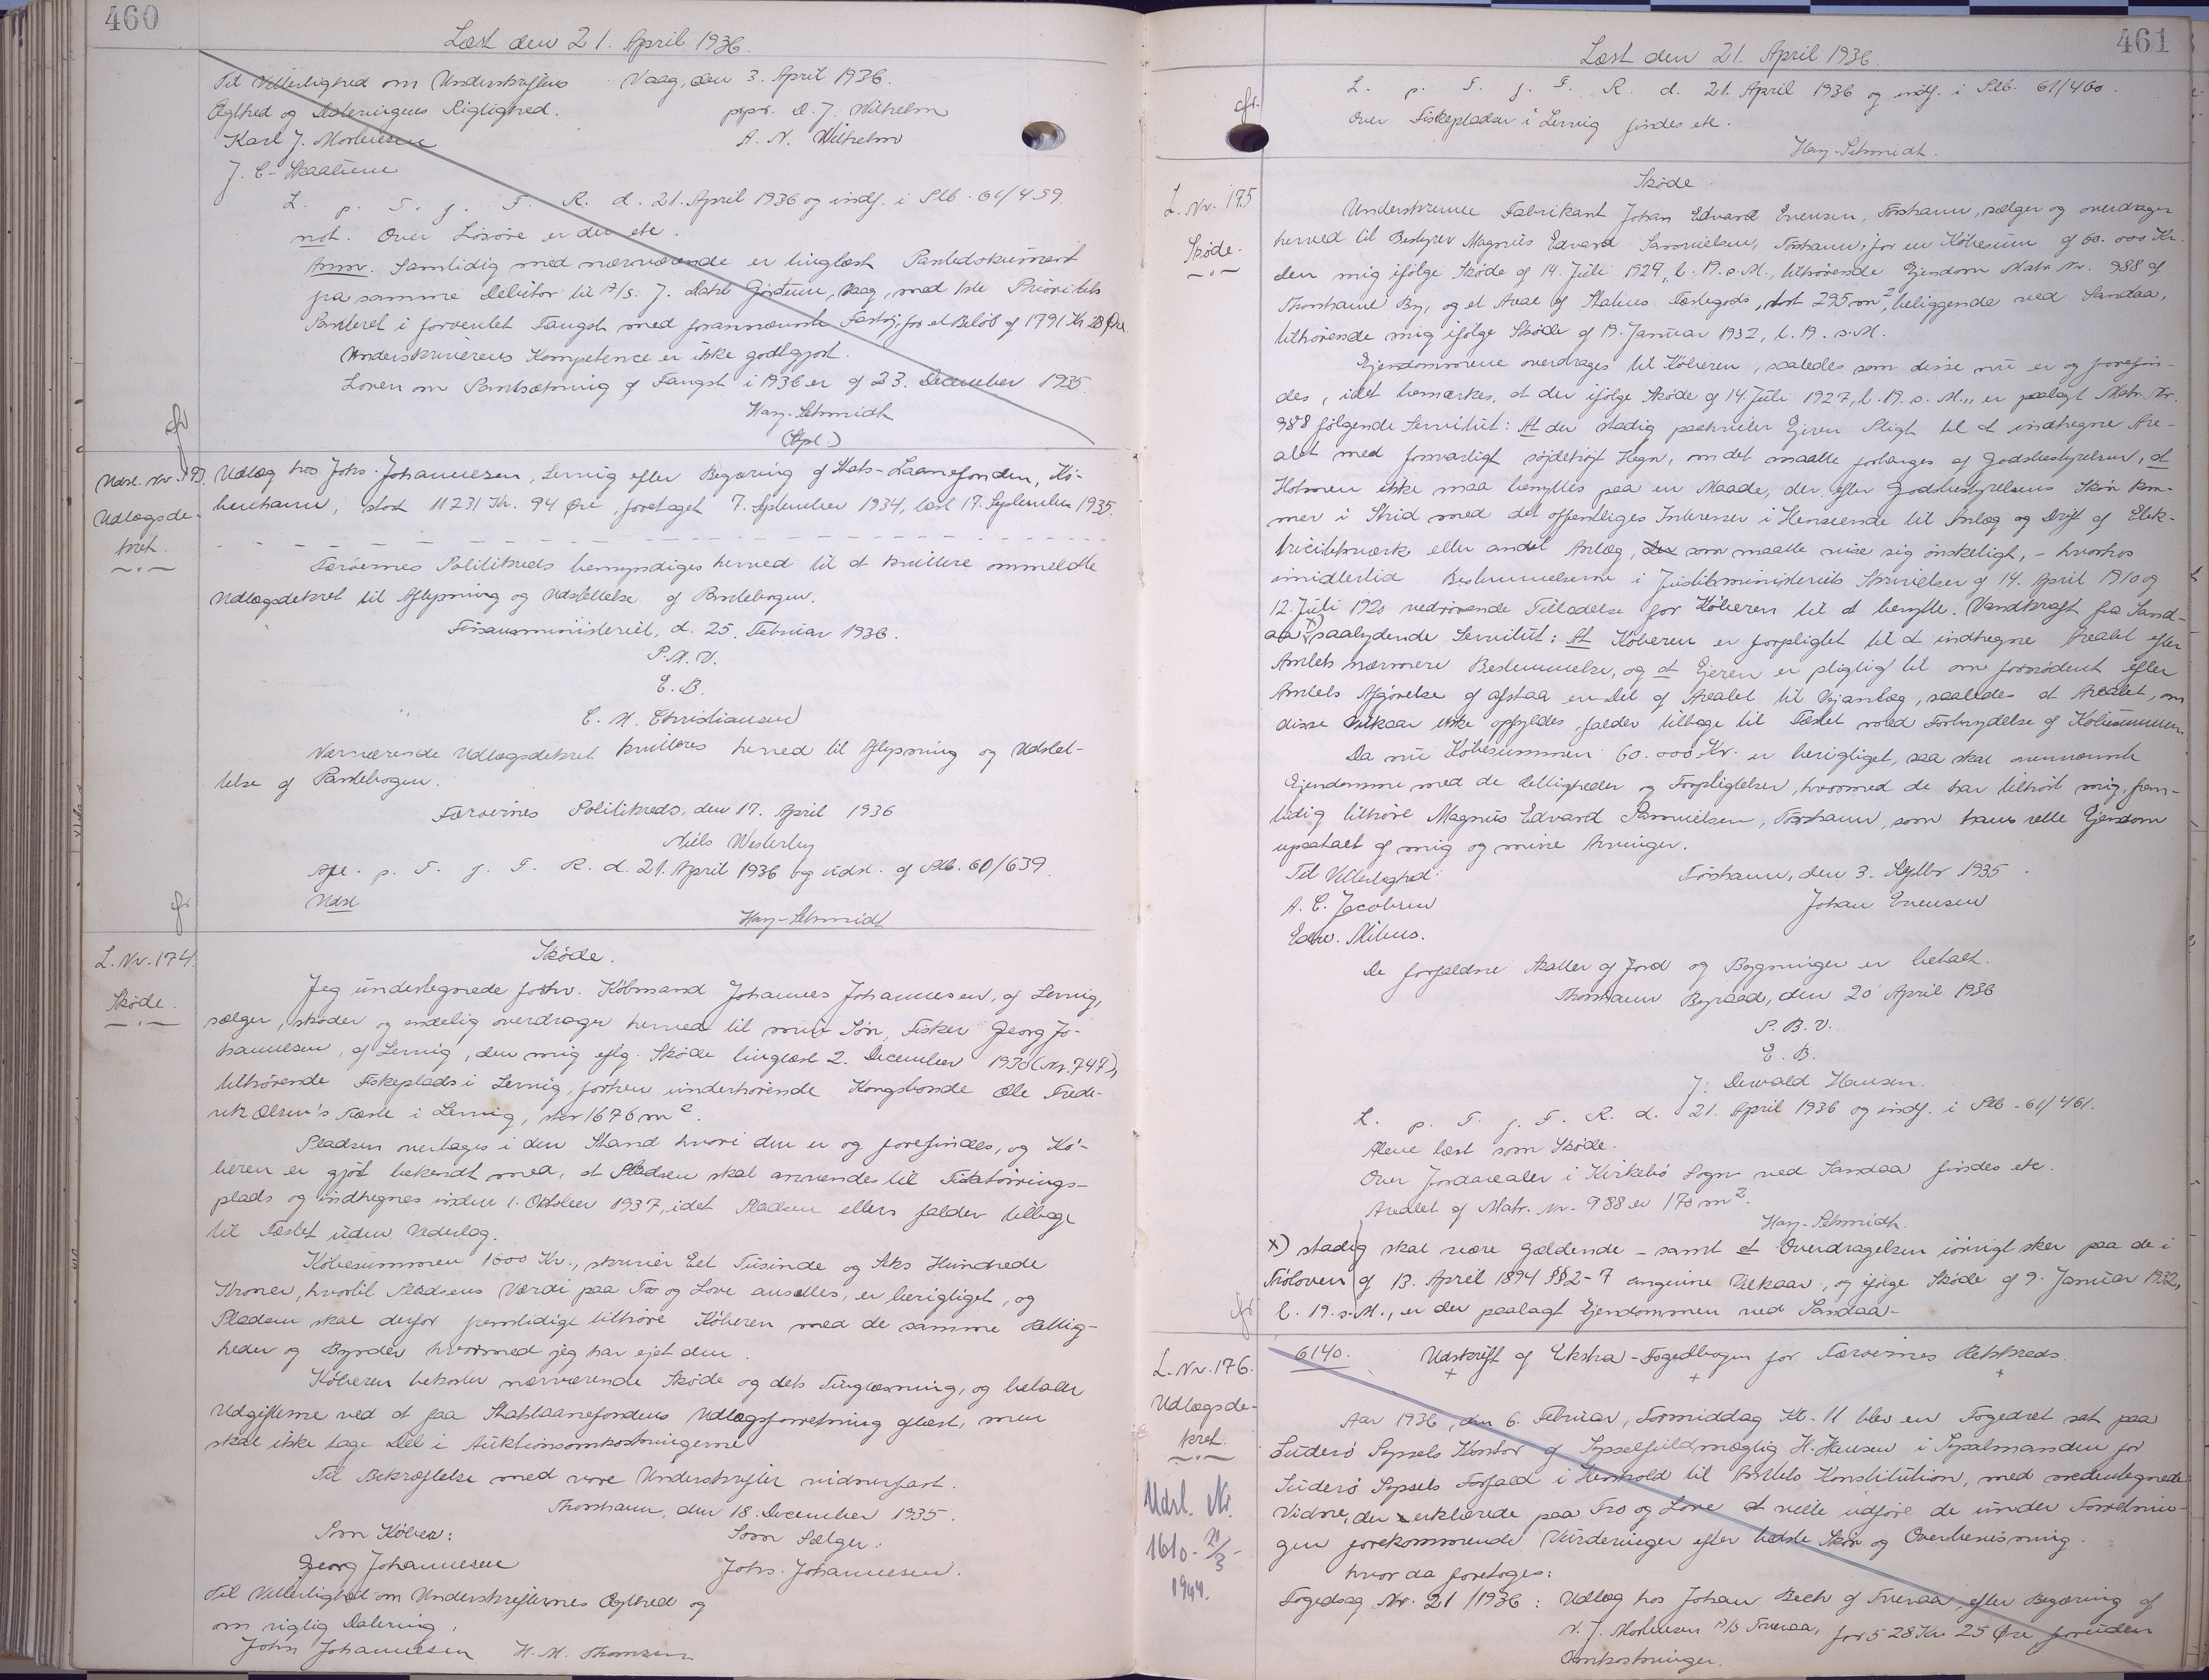 460
Læst den 21. April 1936.
Til Vitterlighed om Underskriftens
Vaag, den 3. April 1936.
Ægthed og Dateringens Rigtighed.
pr.pr. D. J. Wilhelm
Karl J. Mortensen
A. N. Wilhelm
J. C.
L. p. T. f. F. R. d. 21. April 1936 og indf. i Ptb. 61/459.
not. Over Lösöre er der etc.
Anm. Samtidig med nærværende er tinglæst Pantedokument
fra samme Debitor til A/S. J. Dahl Vaag, med 1ste Prioritets
Panteret i forventet Fangst med forannævnte Fartöj, for et Belöb af 1791 Kr. 28 Öre
Underskriverens Kompetence er ikke godtgjort.
Loven om Pantsætning af Fangst i 1936 er af 23. December 1935.
Hay-Schmidt
(Spl.)
cfr
Udsl. Nr. 193.
Udlægsde-
kret.
Udlæg hos Johs. Johannesen, Lervig efter Begæring af Stats-Laanefonden, Kö-
benhavn, stort 11231 Kr. 94 Öre, foretaget 7. September 1934, læst 17. September 1935.
Færöernes Politikreds bemyndiges herved til at kvittere ommeldte
Udlægsdekret til Aflysning og Udslettelse af Pantebogen.
Finansministeriet, d. 25. Februar 1936.
P. M. V.
E. B.
C. M. Christiansen
Nærværende Udlægsdekret kvitteres herved til Aflysning og Udslet-
telse af Pantebogen.
Færöernes Politikreds, den 17. April 1936
Niels Westerby
Afl. p. T. f. F. R. d. 21. April 1936 og udsl. af Ptb. 60/639.
Udsl
Hay-Schmidt
cfr
L. Nr. 174.
Sköde.
Sköde.
Jeg undertegnede forhv. Köbmand Johannes Johannesen, af Lervig,
sælger, sköder og endelig overdrager herved til min Sön, Fisker Georg Jo-
hannesen, af Lervig, den mig eflg. Sköde tinglæst 2. December 1930 (Nr. 747),
tilhörende Fiskeplads i Lervig, forhen underhörende Kongsbonde Ole Frede-
rik Olsen's Fæste i Lervig, stor 1676 m².
Pladsen overtages i den Stand hvori den er og forefindes, og Kö-
beren er gjort bekendt med, at Pladsen skal anvendes til Fisketörrings-
plads og indhegnes inden 1. Oktober 1937, idet Pladsen ellers falder tilbage
til Fæstet uden Vederlag.
Köbesummen 1600 Kr., skriver Eet Tusinde og Seks Hundrede
Kroner, hvortil Pladsens Værdi paa Tro og Love ansættes, er berigtiget, og
Pladsen skal derfor fremtidigt tilhöre Köberen med de samme Rettig-
heder og Byrder hvormed jeg har ejet den.
Köberen bekoster nærværende Sköde og dets Tinglæsning, og betaler
Udgifterne ved at faa Statslaanefondens Udlægsforretning aflæst, men
skal ikke tage Del i Auktionsomkostningerne.
Til Bekræftelse med vore Underskrifter vidnesfast.
Thorshavn, den 18. December 1935.
Som Köber:
Som Sælger:
Georg Johannesen
Johs. Johannesen.
Til Vitterlighed om Underskrifternes Ægthed og
om rigtig Datering:
John Johannesen H. M. Thomsen
461
Læst den 21. April 1936.
cfr.
L. p. T. f. F. R. d. 21. April 1936 og indf. i Ptb. 61/460.
Over Fiskepladser i Lervig findes etc.
Hay-Schmidt.
L. Nr. 175
Sköde.
Sköde.
Underskrevne Fabrikant Johan Edvard Evensen, Tórshavn, sælger og overdrager
herved til Bestyrer Magnus Edvard Samuelsen, Tórshavn, for en Köbesum af 60.000 Kr.
den mig ifölge Sköde af 14. Juli 1927, l. 19. s. M., tilhörende Ejendom Matr. Nr. 988 af
Thorshavns By, og et Areal af Statens Fæstegods, stort 295 m², beliggende ved Sandaa,
tilhörende mig ifölge Sköde af 9. Januar 1932, l. 19. s. M.
Ejendommene overdrages til Köberen, saaledes som disse nu er og forefin-
des, idet bemærkes, at der ifölge Sköde af 14. Juli 1927, l. 19. s. M., er paalagt Matr. Nr.
988 fölgende Servitut: At der stadig paahviler Ejeren Pligt til at indhegne Are-
alet med forsvarligt Hegn, om det maatte forlanges af Godsbestyrelsen, at
ikke maa benyttes paa en Maade, der efter Godsbestyrelsens Skön kom-
mer i Strid med det offentliges Interesser i Henseende til Anlæg og Drift af Elek-
tricitetsværk eller andet Anlæg, som maatte vise sig önskeligt, - hvorhos
imidlertid Bestemmelserne i Justitsministeriets Skrivelser af 14. April 1910 og
12. Juli 1920 vedrörende Tilladelse for Köberen til at benytte Vandkraft fra Sand-
aa x) saalydende Servitut: At Köberen er forpligtet til at indhegne Arealet efter
Amtets nærmere Bestemmelse, og at Ejeren er pligtig til om fornödent efter
Amtets Afgörelse af afstaa en Del af Arealet til Vejanlæg, saaledes at Arealet, om
disse Vilkaar ikke opfyldes, falder tilbage til Fæstet med Fortrydelse af Köbesummen.
Da nu Köbesummen 60.000 Kr. er berigtiget, saa skal ovennævnte
Ejendomme med de Rettigheder og Forpligtelser, hvormed de har tilhört mig, frem-
tidig tilhöre Magnus Edvard Samuelsen, Tórshavn, som hans rette Ejendom
upaatalt af mig og mine Arvinger.
Til Vitterlighed:
Tórshavn, den 3. Septbr 1935.
A. C. Jacobsen
Johan Evensen
Edw. Mitens.
De forfaldne Skatter af Jord og Bygninger er betalt.
Thorshavns Byraad, den 20 April 1936
P. B. V.
E. B.
J. Dewald Hansen.
L. p. T. f. F. R. d. 21. April 1936 og indf. i Ptb. 61/461.
Alene læst som Sköde.
Over Jordarealer i Kirkebö Sogn ved Sandaa findes etc.
Arealet af Matr. Nr. 988 er 170 m².
Hay-Schmidt.
x) stadig skal være gældende - samt at Overdragelsen iövrigt sker paa de i
af 13. April 1894 §§ 2-7 angivne Vilkaar, og ifölge Sköde af 9. Januar 1932,
l. 19. s. M., er der paalagt Ejendommen ved Sandaa-
cfr
L. Nr. 176.
Udlægsde-
kret.
Udsl. Nr.
1610 - 21/3 -
1944.
6140.
Udskrift af Ekstra-Fogedbogen for Færöernes Retskreds.
Aar 1936, den 6. Februar, Formiddag Kl. 11 blev en Fogedret sat paa
Suderö Sysels Kontor af Sysselfuldmægtig H. Hansen i Sysselmanden for
Suderö Sysels Forfald i Henhold til Amtets Konstitution, med medundertegnede
Vidner, der erklærede paa Tro og Love at ville udföre de under Forretnin-
gen forekommende Vurderinger efter bedste Skön og Overbevisning.
hvor da foretoges:
Fogedsag Nr. 21/1936: Udlæg hos Johan Bech af Tveraa, efter Begæring af
N. J. Mortensen A/S Tveraa, for 528 Kr. 25 Öre foruden
Omkostninger.